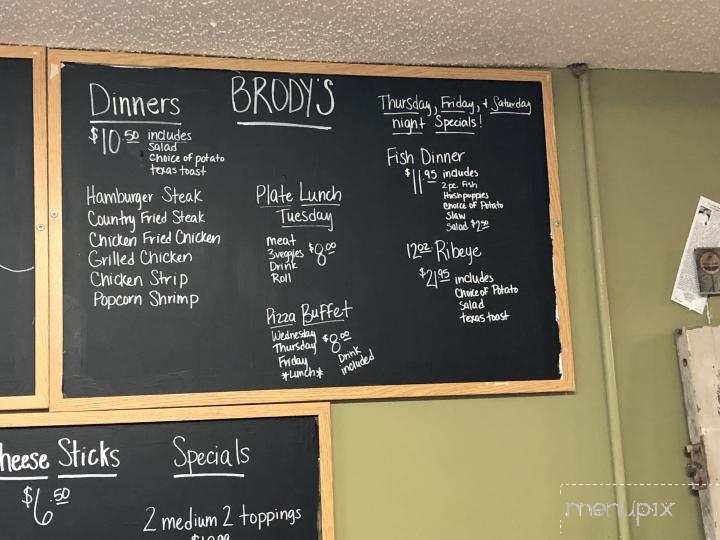 BRODY'S
Dinners
$10.50 includes
Salad
Choice of potato
texas toast
Hamburger Steak
Country Fried Steak
Chicken Fried Chicken
Grilled Chicken
Chicken Strip
Popcorn Shrimp
Plate Lunch
Tuesday
meat
3 veggies $8.00
Drink
Roll
Pizza Buffet
Wednesday
Thursday $8.00
Friday Drink
*Lunch* included
Thursday, Friday, + Saturday
night Specials!
Fish Dinner
$11.95 includes
2 pc. Fish
Hushpuppies
Choice of Potato
Slaw
Salad $2.50
12oz. Ribeye
$21.95 includes
Choice of Potato
Salad
texas toast
heese Sticks
$6.50
Specials
2 medium 2 toppings
menupix